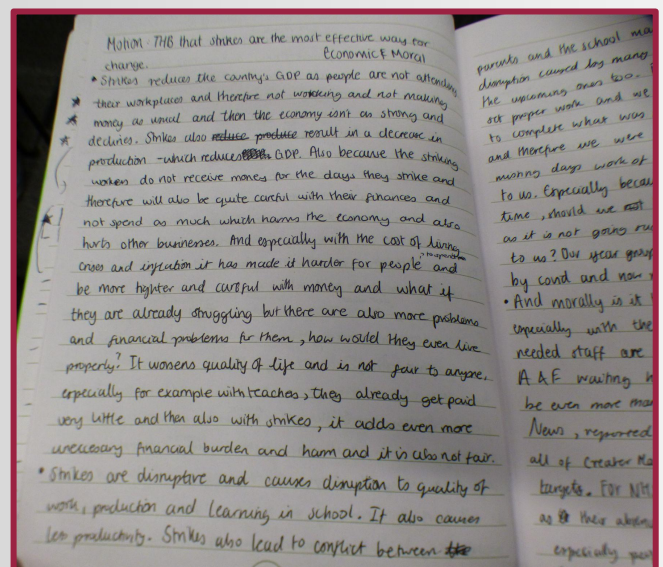 Motion: THB that strikes are the most effective way for
change. Economic & Moral
• Strikes reduces the country's GDP as people are not attending
their workplaces and therefore not working and not making
money as usual and then the economy isn't as strong and
declines. Strikes also reduce produce result in a decrease in
production - which reduces GDP. Also because the striking
workers do not receive money for the days they strike and
therefore will also be quite careful with their finances and
not spend as much which harms the economy and also
hurts other businesses. And especially with the cost of living
crises and inflation it has made it harder for people to spend and
be more tighter and careful with money and what if
they are already struggling but there are also more problems
and financial problems for them, how would they even live
properly? It worsens quality of life and is not fair to anyone,
especially for example with teaches, they already get paid
very little and then also with strikes, it adds even more
uneccesary financial burden and harm and it is also not fair.
• Strikes are disruptive and causes disruption to quality of
work, production and learning in school. It also causes
less productivity. Strikes also lead to conflict between the
parents and the school
disruption caused by many
the upcoming ones too.
set proper work and we
to complete what was
and therefore we were
missing days work of
to us. Especially
time, should we not
as it is not going
to us? Our year group
by covid and now
• And morally is it
especially with the
needed staff are
A & E waiting
be even more
News, reported
all of Greater
targets. For
as their
especially